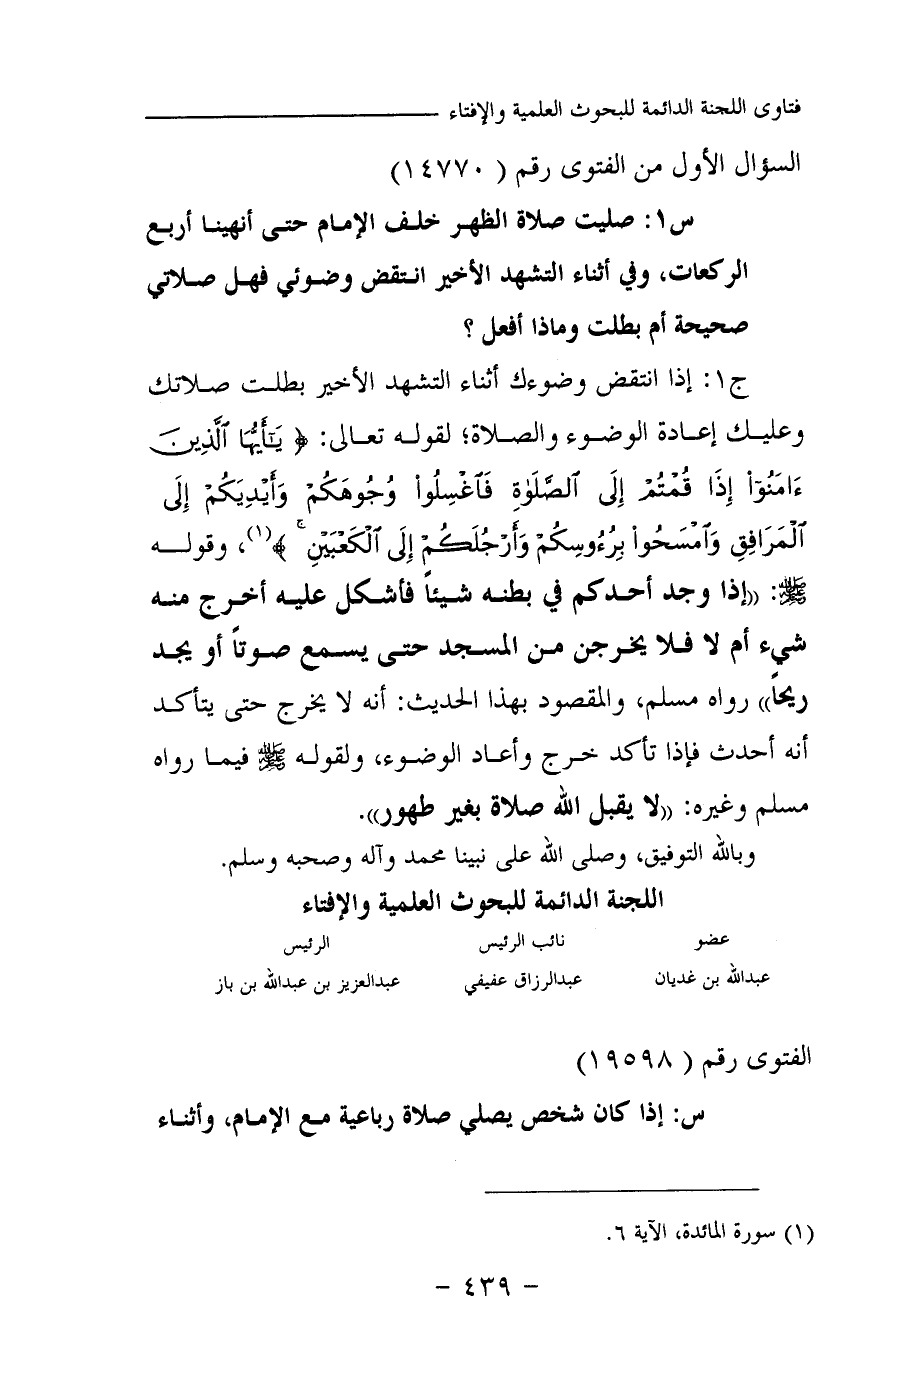 فتاوى اللجنة الدائمة للبحوث العلمية والإفتاء
السؤال الأول من الفتوى رقم ( ١٤٧٧٠)
س١: صليت صلاة الظهر خلف الإمام حتى أنهينا أربع
الركعات، وفي أثناء التشهد الأخير انتقض وضوئي فهل صلاتي
صحيحة أم بطلت وماذا أفعل ؟
ج١: إذا انتقض وضوءك أثناء التشهد الأخير بطلت صلاتك
وعليك إعادة الوضوء والصلاة؛ لقوله تعالى: ﴿ يَٰٓأَيُّهَا ٱلَّذِينَ
ءَامَنُوٓا۟ إِذَا قُمْتُمْ إِلَى ٱلصَّلَوٰةِ فَٱغْسِلُوا۟ وُجُوهَكُمْ وَأَيْدِيَكُمْ إِلَى
ٱلْمَرَافِقِ وَٱمْسَحُوا۟ بِرُءُوسِكُمْ وَأَرْجُلَكُمْ إِلَى ٱلْكَعْبَيْنِ ۚ ﴾(١)، وقوله
ﷺ: «إذا وجد أحدكم في بطنه شيئاً فأشكل عليه أخرج منه
شيء أم لا فلا يخرجن من المسجد حتى يسمع صوتاً أو يجد
ريحاً» رواه مسلم، والمقصود بهذا الحديث: أنه لا يخرج حتى يتأكد
أنه أحدث فإذا تأكد خرج وأعاد الوضوء، ولقوله ﷺ فيما رواه
مسلم وغيره: «لا يقبل الله صلاة بغير طهور».
وبالله التوفيق، وصلى الله على نبينا محمد وآله وصحبه وسلم.
اللجنة الدائمة للبحوث العلمية والإفتاء
عضو نائب الرئيس الرئيس
عبدالله بن غديان عبدالرزاق عفيفي عبدالعزيز بن عبدالله بن باز
الفتوى رقم ( ١٩٥٩٨)
س: إذا كان شخص يصلي صلاة رباعية مع الإمام، وأثناء
(١) سورة المائدة، الآية ٦.
- ٤٣٩ -